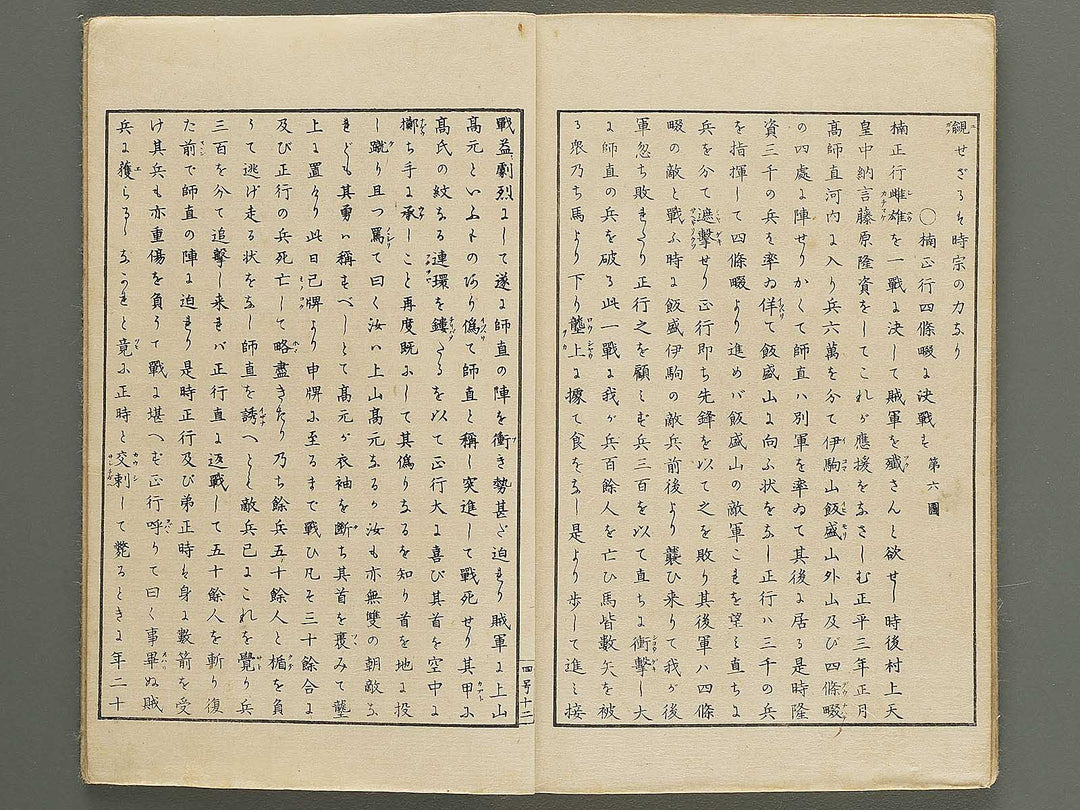 覦せざるも時宗の力なり
○楠正行四條畷に決戰す 第六圖
楠正行雌雄を一戰に決して賊軍を殲さんと欲せし時後村上天
皇中納言藤原隆資をしてこれが應援をなさしむ正平三年正月
高師直河内に入り兵六萬を分て伊駒山飯盛山外山及び四條畷
の四處に陣せりかくて師直ハ別軍を率ゐて其後に居る是時隆
資三千の兵を率ゐ佯て飯盛山に向ふ状をなし正行ハ三千の兵
を指揮して四條畷より進めバ飯盛山の敵軍これを望み直ちに
兵を分て遮撃せり正行即ち先鋒を以て之を敗り其後軍ハ四條
畷の敵と戰ふ時に飯盛伊駒の敵兵前後より襲ひ来りて我が後
軍忽ち敗れたり正行之を顧みず兵三百を以て直ちに衝撃し大
に師直の兵を破る此一戰に我が兵百餘人を亡ひ馬皆數矢を被
る衆乃ち馬より下り壟上に據て食をなし是より歩して進み接
戰益劇烈にして遂に師直の陣を衝き勢甚ざ迫れり賊軍に上山
高元といふ人のあり僞て師直と稱し突進して戰死せり其甲に
高氏の紋なる連環を鏤たるを以て正行大に喜び其首を空中に
擲ち手に承しこと再度既にして其僞りなるを知り首を地に投
し蹴り且つ罵て曰く汝ハ上山高元なるか汝も亦無雙の朝敵な
れども其勇ハ稱すべしとて高元が衣袖を斷ち其首を裹みて壟
上に置けり此日巳牌より申牌に至るまで戰ひ凡そ三十餘合に
及び正行の兵死亡して略盡きたり乃ち餘兵五十餘人と楯を負
うて逃げ走る状をなし師直を誘へども敵兵已にこれを覺り兵
三百を分て追撃し来れバ正行直に返戰して五十餘人を斬り復
た前で師直の陣に迫れり是時正行及び弟正時も身に數箭を受
け其兵も亦重傷を負うて戰に堪へず正行呼りて曰く事畢ぬ賊
兵に獲らるゝなかれと竟に正時と交刺して斃るときに年二十
四号十二